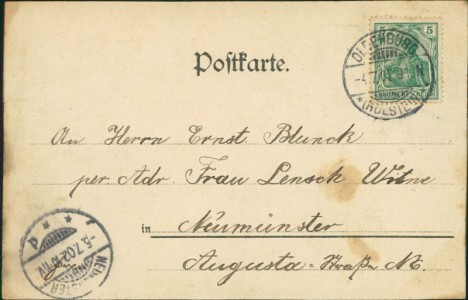 Postkarte.
5 5
OLDENBURG
-4.7.02
*(HOLSTEIN)
An Herrn Ernst Blunck
per. Adr. Frau Lensch Witwe
in Neumünster
Augusta-Straße
NEUMÜNSTER
-5.7.02